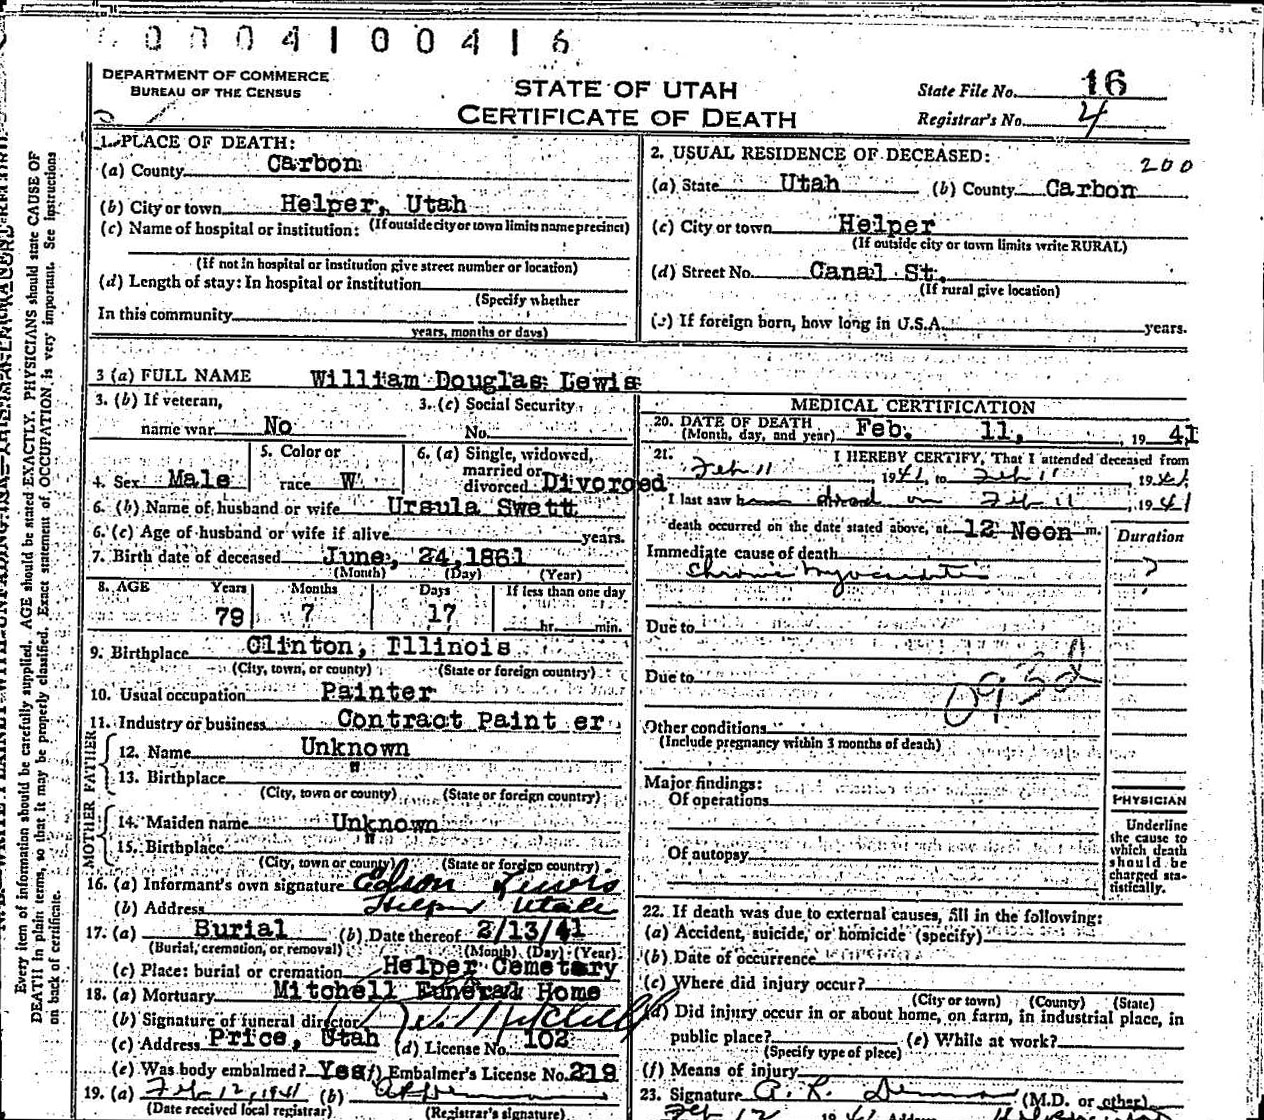 0004100416
DEPARTMENT OF COMMERCE
BUREAU OF THE CENSUS
STATE OF UTAH
CERTIFICATE OF DEATH
State File No. 16
Registrar's No. 4
1. PLACE OF DEATH:
(a) County Carbon
(b) City or town Helper, Utah
(If outside city or town limits name precinct)
(c) Name of hospital or institution:
(If not in hospital or institution give street number or location)
(d) Length of stay: In hospital or institution
(Specify whether
In this community
years, months or days)
2. USUAL RESIDENCE OF DECEASED:
200
(a) State Utah (b) County Carbon
(c) City or town Helper
(If outside city or town limits write RURAL)
(d) Street No. Canal St.
(If rural give location)
(e) If foreign born, how long in U.S.A. years.
3 (a) FULL NAME William Douglas Lewis
3. (b) If veteran, name war No
3. (c) Social Security No.
4. Sex Male
5. Color or race W
6. (a) Single, widowed, married or divorced Divorced
6. (b) Name of husband or wife Ursula Swett
6. (c) Age of husband or wife if alive years.
7. Birth date of deceased June, 24, 1861
(Month) (Day) (Year)
8. AGE Years Months Days If less than one day
79 7 17 hr. min.
9. Birthplace Clinton, Illinois
(City, town, or county) (State or foreign country)
10. Usual occupation Painter
11. Industry or business Contract Painter
FATHER
12. Name Unknown
13. Birthplace "
(City, town or county) (State or foreign country)
MOTHER
14. Maiden name Unknown
15. Birthplace "
(City, town or county) (State or foreign country)
16. (a) Informant's own signature Edson Lewis
(b) Address Helper Utah
17. (a) Burial (b) Date thereof 2/13/41
(Burial, cremation, or removal) (Month) (Day) (Year)
(c) Place: burial or cremation Helper Cemetary
18. (a) Mortuary Mitchell Funeral Home
(b) Signature of funeral director Mitchell
(c) Address Price, Utah (d) License No. 102
(e) Was body embalmed? Yes (f) Embalmer's License No. 219
19. (a) Feb 12, 1941 (b)
(Date received local registrar) (Registrar's signature)
MEDICAL CERTIFICATION
20. DATE OF DEATH
(Month, day, and year) Feb. 11, 1941
21. I HEREBY CERTIFY, That I attended deceased from
Feb 11, 1941, to Feb 11, 1941
I last saw h dead on Feb 11, 1941
death occurred on the date stated above, at 12 Noon m.
Duration
Immediate cause of death
Chronic Myocarditis ?
Due to
Due to
093d
Other conditions
(Include pregnancy within 3 months of death)
Major findings:
Of operations
Of autopsy
PHYSICIAN
Underline
the cause to
which death
should be
charged sta-
tistically.
22. If death was due to external causes, fill in the following:
(a) Accident, suicide, or homicide (specify)
(b) Date of occurrence
(c) Where did injury occur?
(City or town) (County) (State)
(d) Did injury occur in or about home, on farm, in industrial place, in
public place? (e) While at work?
(Specify type of place)
(f) Means of injury
23. Signature (M.D. or other)
Every item of information should be carefully supplied. AGE should be stated EXACTLY. PHYSICIANS should state CAUSE OF
DEATH in plain terms, so that it may be properly classified. Exact statement of OCCUPATION is very important. See instructions
on back of certificate.